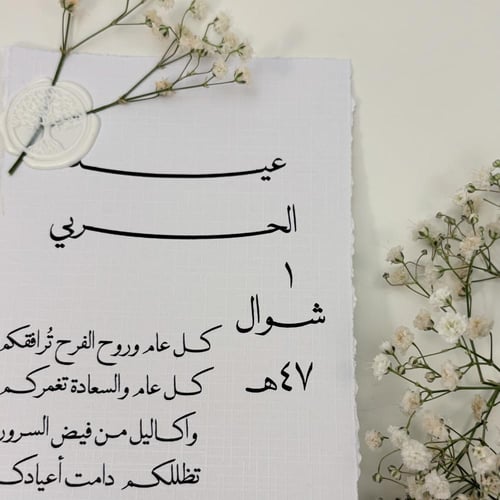 عيد
الحربي
١
شوال
٤٧هـ
كل عام وروح الفرح تُرافقكم
كل عام والسعادة تغمركم
واكاليل من فيض السرور
تظللكم دامت أعيادك